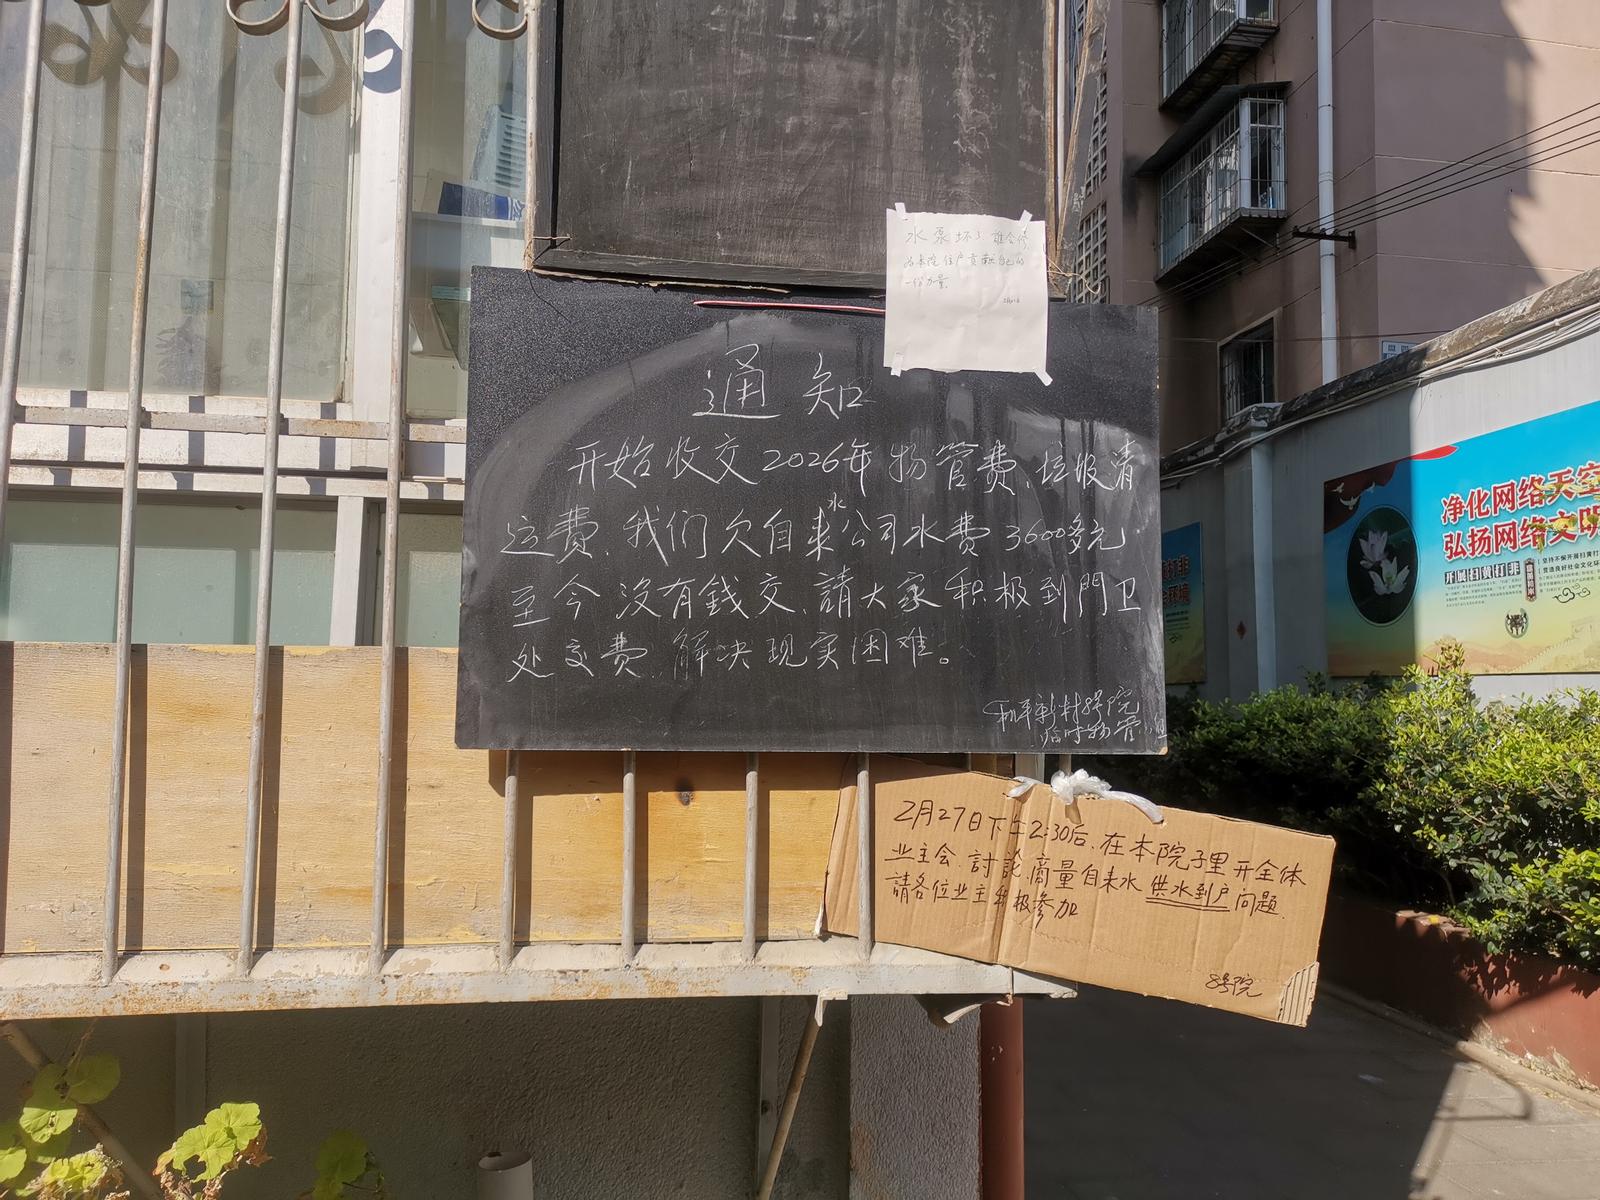 水泵坏了谁会修
为本院住户贡献自己的
一份力量
通知
开始收交2026年物管费、垃圾清
运费、我们欠自来水公司水费3600多元
至今没有錢交、請大家积极到門卫
处交费、解决现实困难。
和平新村8号院
临时物管小组
2月27日下午2:30后、在本院子里开全体
业主会、討论、商量自来水供水到户问题、
請各位业主积极参加
8号院
净化网络天空
弘扬网络文明
开展扫黄打非